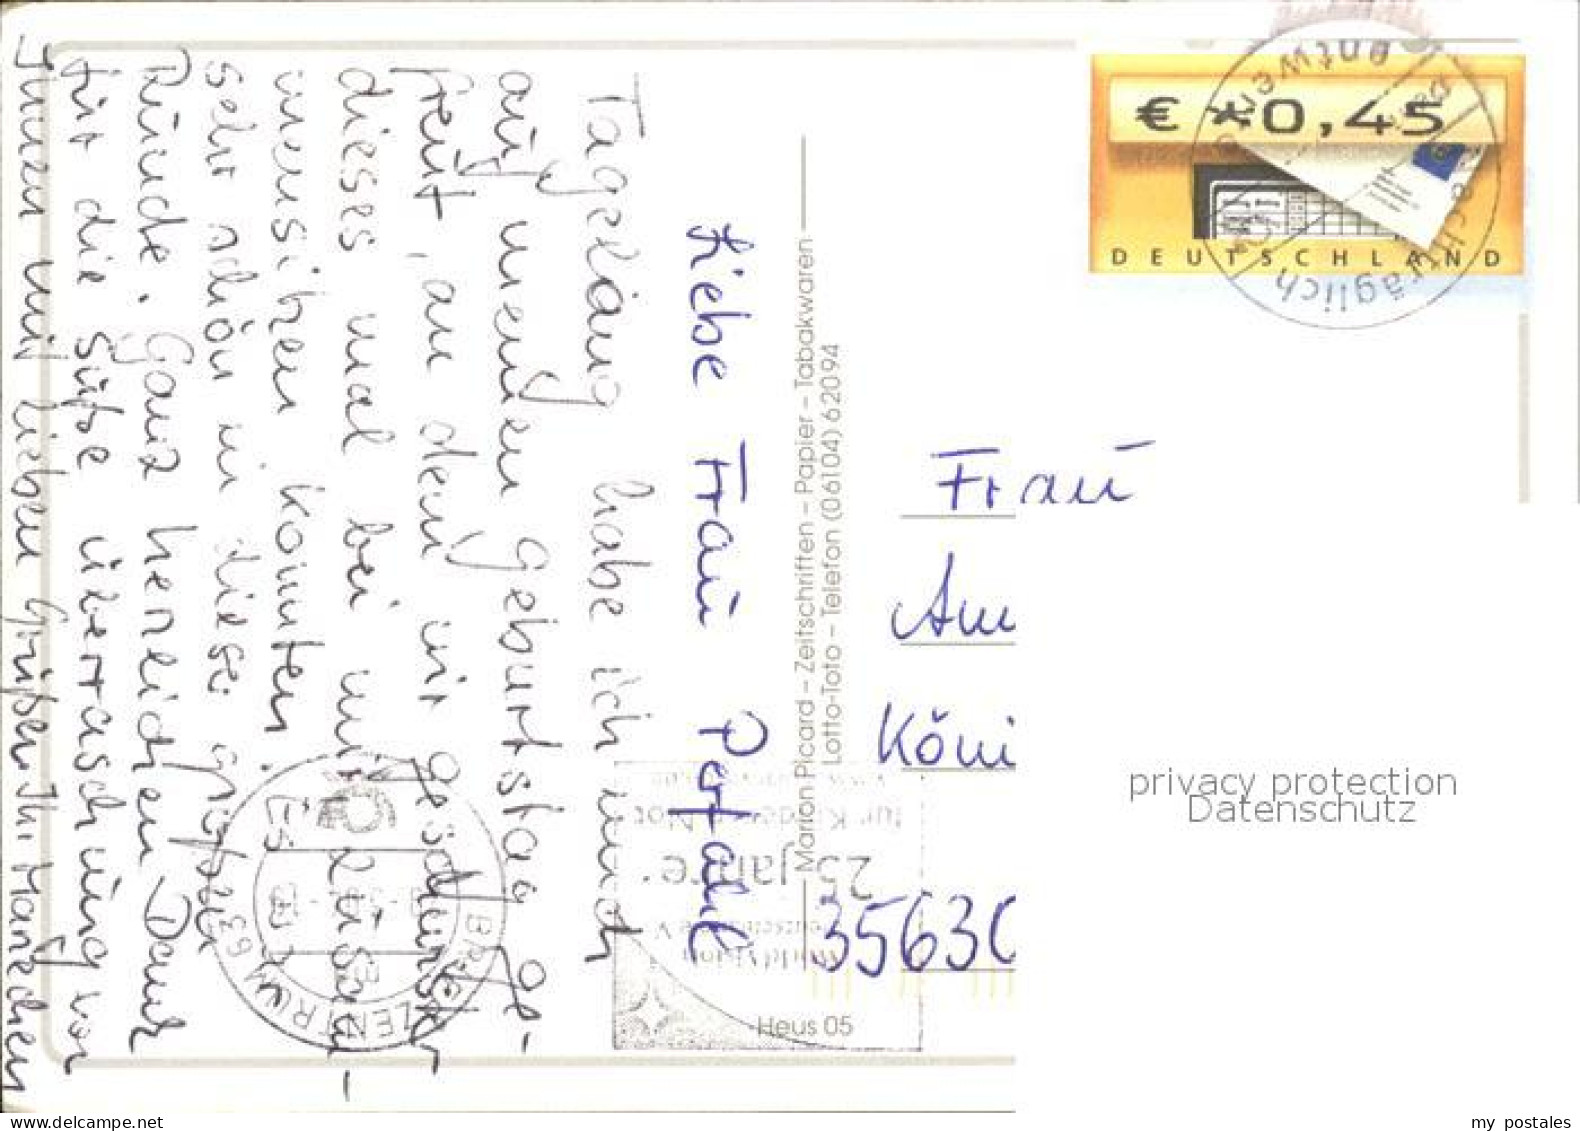 Liebe Frau
Tagelang habe ich mich
auf meinen Geburtstag ge-
freut, an dem wir
dieses mal bei mir zusam-
mensitzen konnten.
sehr schön in diese
Runde. Ganz herzlichen Dank
für die süße Überraschung von
Ihnen mit lieben Grüßen Ihr
Marion Picard – Zeitschriften – Papier – Tabakwaren
Lotto-Toto – Telefon (06104) 62094
Heus 05
€ *0,45
DEUTSCHLAND
nachträglich entwertet
BRIEFZENTRUM 63
25 Jahre
für Kinder in Not
Frau
Am
Köni
35630
privacy protection
Datenschutz
my postales